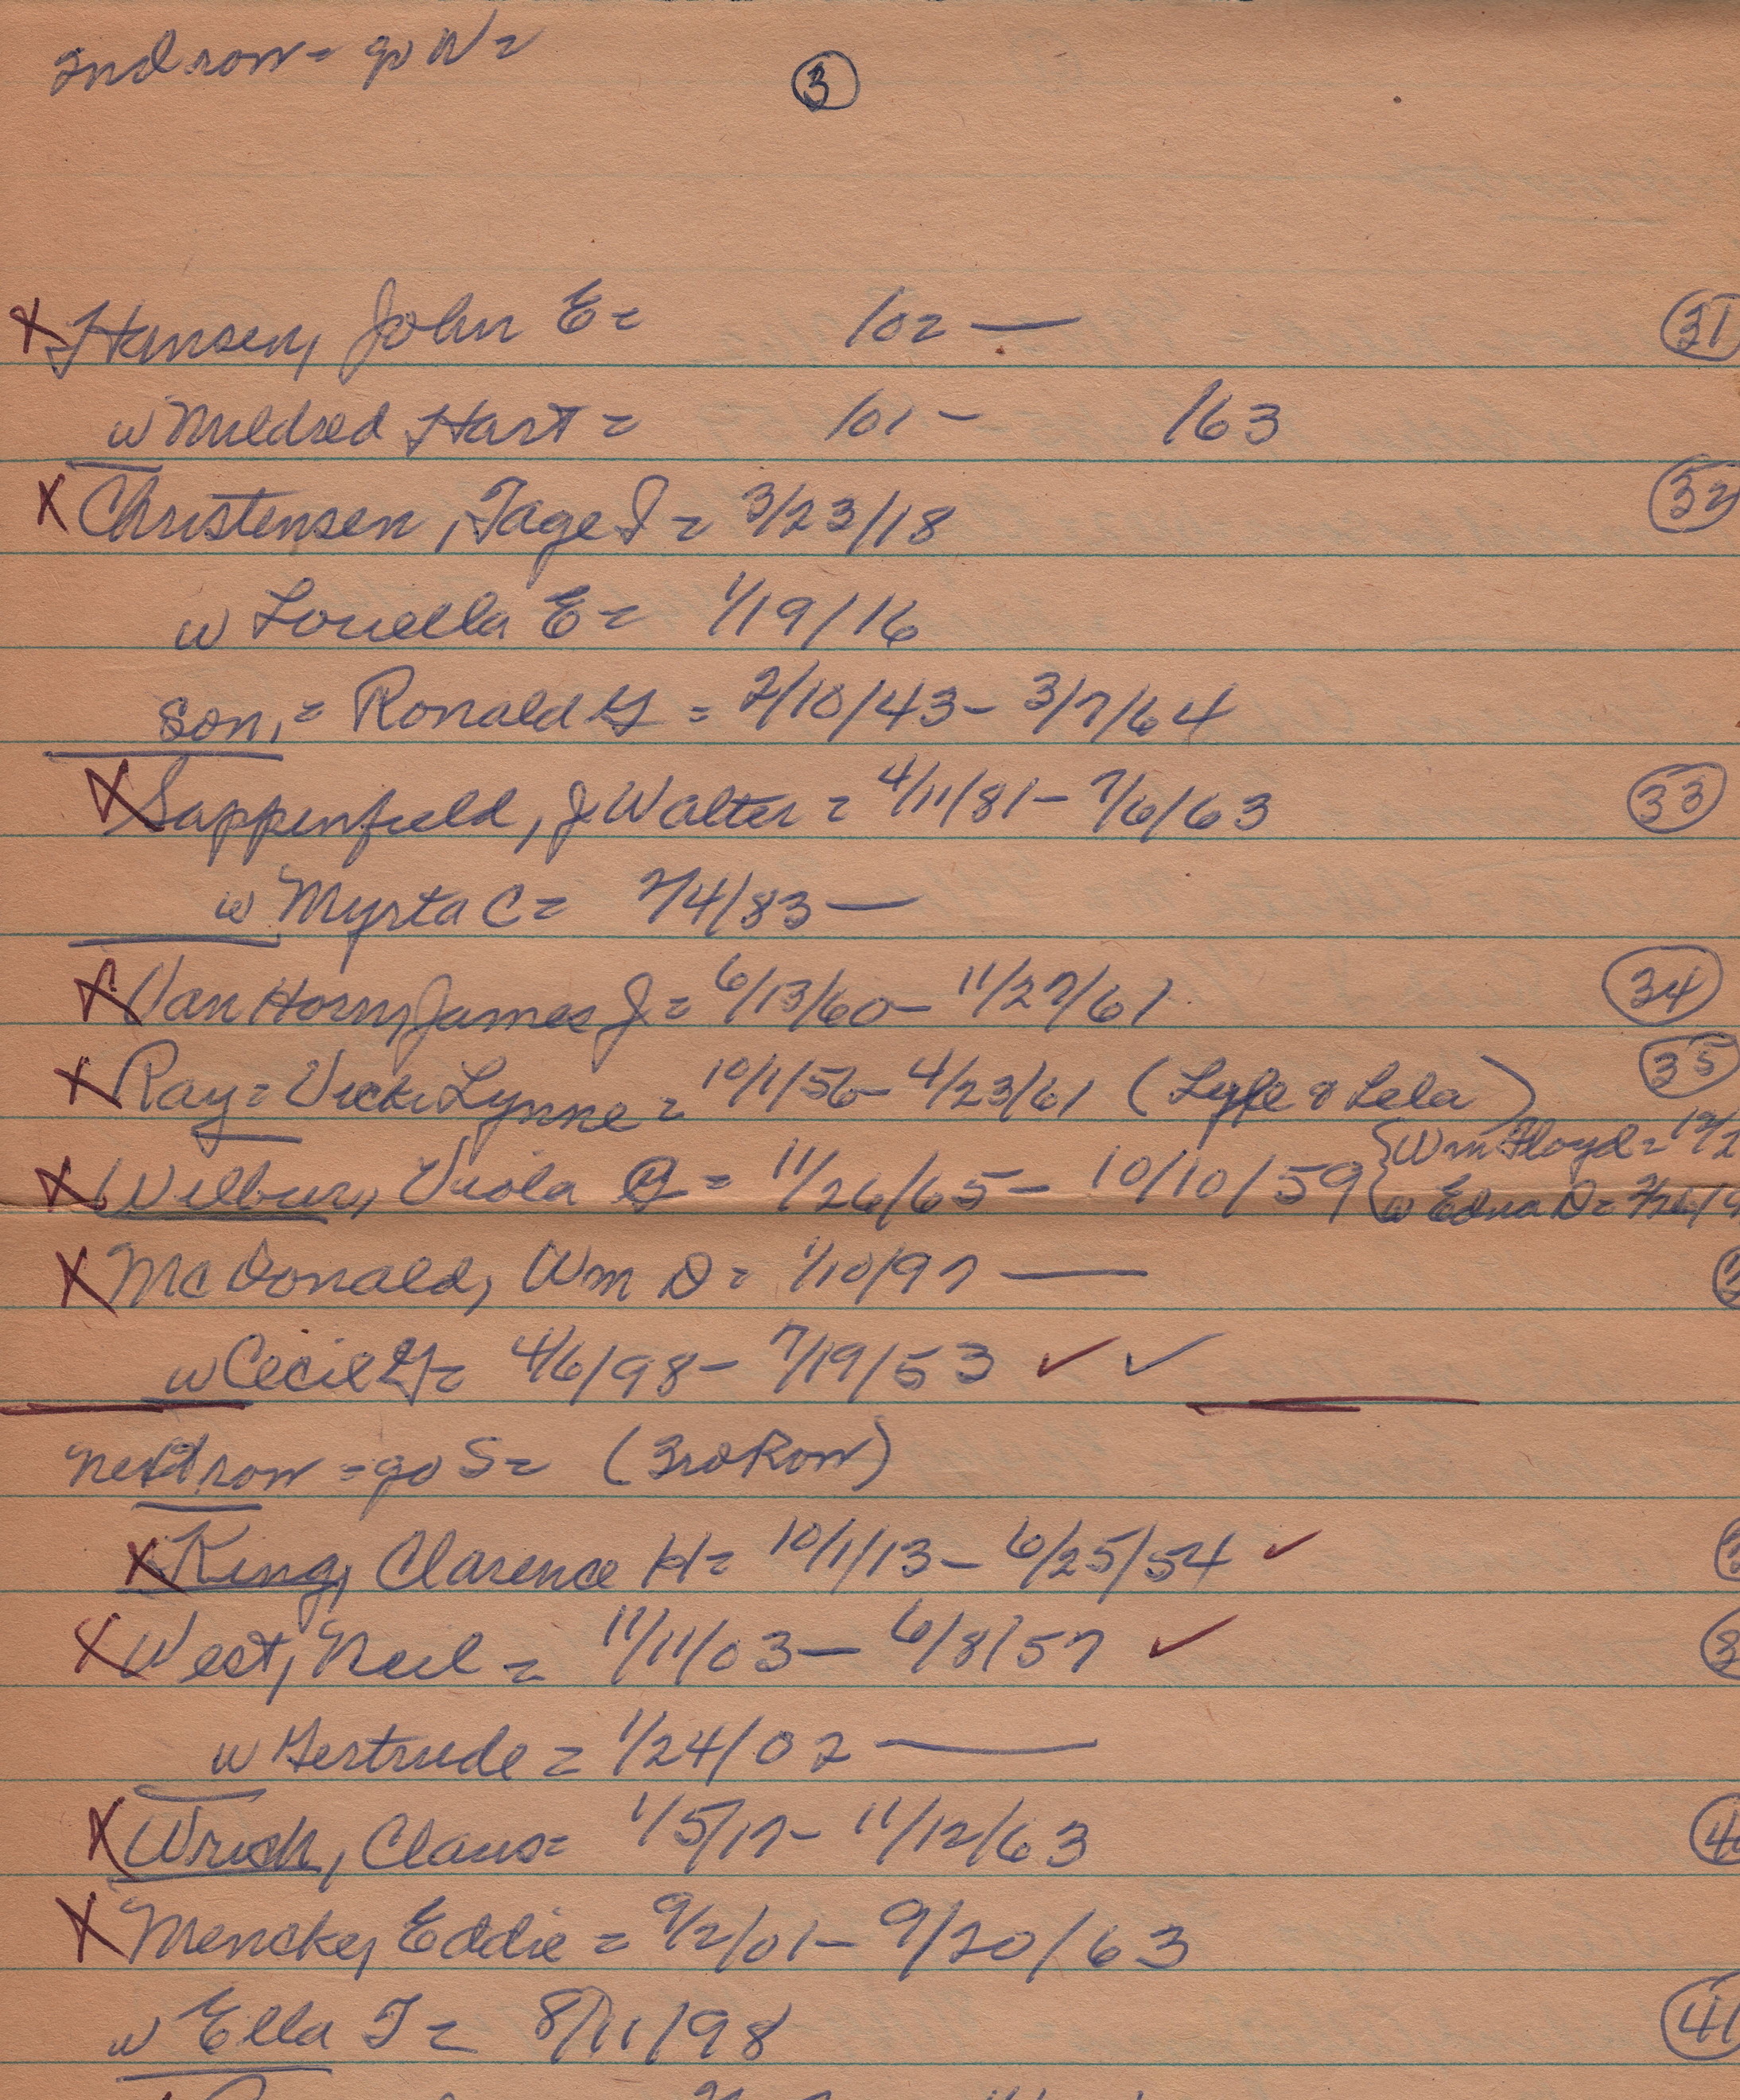 2nd row = go N =
3
X Hansen, John E = /02 — 31
w Mildred Hart = /01 - /63
X Christensen, Tage I = 3/23/18 32
w Louella E = 1/19/16
son, = Ronald G = 2/10/43 - 3/7/64
X Sappenfield, J Walter = 4/11/81 - 7/6/63 33
w Myrta C = 7/4/83 —
X Van Horn, James J = 6/13/60 - 11/27/61 34
X Ray = Vicki Lynne = 10/1/56 - 4/23/61 (Lyle & Lela) 35
X Wilbur, Viola = 11/26/65 - 10/10/59 { Wm Floyd = 
w Edna D =
X McDonald, Wm D = 1/10/97 —
w Cecil G = 4/6/98 - 7/19/53 ✓ ✓
next row = go S = (3rd Row)
X King, Clarence H = 10/1/13 - 6/25/54 ✓
X West, Neil = 11/11/03 - 6/8/57 ✓
w Gertrude = 1/24/02 —
X Wrich, Claus = 1/5/17 - 11/12/63
X Mencke, Eddie = 9/2/01 - 9/20/63
w Ella T = 8/11/98 41